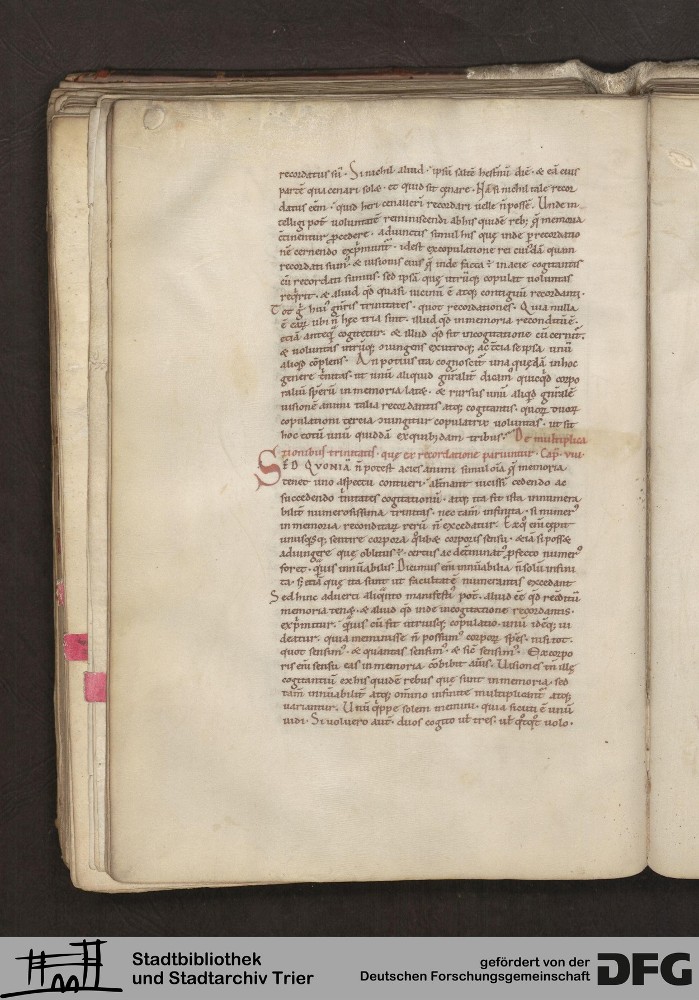 recordatus sũ · Si nichil aliud · ipsũ saltẽ hesternũ diẽ · & eã eius
partẽ qua cenari solæ · et quid sit cenare · Nã si nichil tale recor
datus eẽm · quid heri cenauerĩ recordari uelle ñ possẽ · Unde in
telligi potẽ uoluntatẽ reminiscendi ab his quidẽ reb; que memoria
continentur procedere · adiunctis simul his que inde p recordatio
nẽ cernendo exprimuntur · id est ex copulatione rei cuiusdã quam
recordati sumus · & uisionis eius que inde facta ẽ in acie cogitantis
cũ recordati sumus · sed ipsa que utrũq; copulat uoluntas
requirit · & aliud qd quasi uicinũ ẽ atq; contiguũ recordanti ·
Tot g huius generis trinitates · quot recordationes · Quia nulla
ẽ earũ ubi ñ hec tria sint · illud qd in memoria reconditũ ẽ ·
etiã anteq̃ cogitetur · & illud qd fit in cogitatione cũ cernit̃ ·
& uoluntas utrũq; iungens ex utroq; ac tercia se ipsa unũ
aliqd complens · An potius ita cognoscit̃ una quedã in hoc
genere trinitas · ut unũ aliquid generalit̃ dicam̃ quicqd corpo
raliũ specierũ in memoria latæ · & rursus unũ aliqd generale
uisionẽ animi talia recordantis atq; cogitantis · quorum duorum
copulationi tercia iungitur copulatrix uoluntas · ut sit
hoc totũ unũ quiddã ex quibusdam tribus · De multiplica
tionibus trinitatis · que ex recordatione pariuntur · Cap · VIII ·
SED QVONIÃ ñ potest acies animi simul oĩa que memoria
tenet uno aspectu contueri · alternant uicissĩ cedendo ac
succedendo trinitates cogitationũ · atq; ita fit ista innumera
bilit̃ numerosissima trinitas · nec tam̃ infinita · si numerus
in memoria reconditarũ rerũ ñ excedatur · Ex quo enĩ cepit
unusquisq; sentire corpora quolibet corporis sensu · & ia si posset
adiungere que oblitus ẽ · certus ac determinatus profecto numerus
foret · quamuis innũabilis · Dicimus enĩ innũabilia ñ solũ infini
ta · sed etiã que ita sunt ut facultatẽ numerantis excedant
Sed hinc aduerti aliquanto manifestius potẽ · aliud eẽ qd reconditũ
memoria tenet · & aliud qd inde in cogitatione recordantis ·
exprimitur · quamuis cũ fit utriusq; copulatio · unũ idẽq; ui
deatur · quia meminisse ñ possumus corporum spẽs · nisi tot ·
quot sensimus · & quantas sensimus · & sic̃ sensimus · Ex corpo
ris enĩ sensu eas in memoria combibit animus · Uisiones tñ illę
cogitantiũ ex his quidẽ rebus que sunt in memoria · sed
tam̃ innũabilit̃ atq; omnino infinite multiplicant̃ atq;
uariantur · Unũ quippe solem memini · quia sicuti ẽ unũ
uidi · Si uoluero aut̃ · duos cogito uł tres · uł quotquot uolo ·
Stadtbibliothek
und Stadtarchiv Trier
gefördert von der
Deutschen Forschungsgemeinschaft
DFG